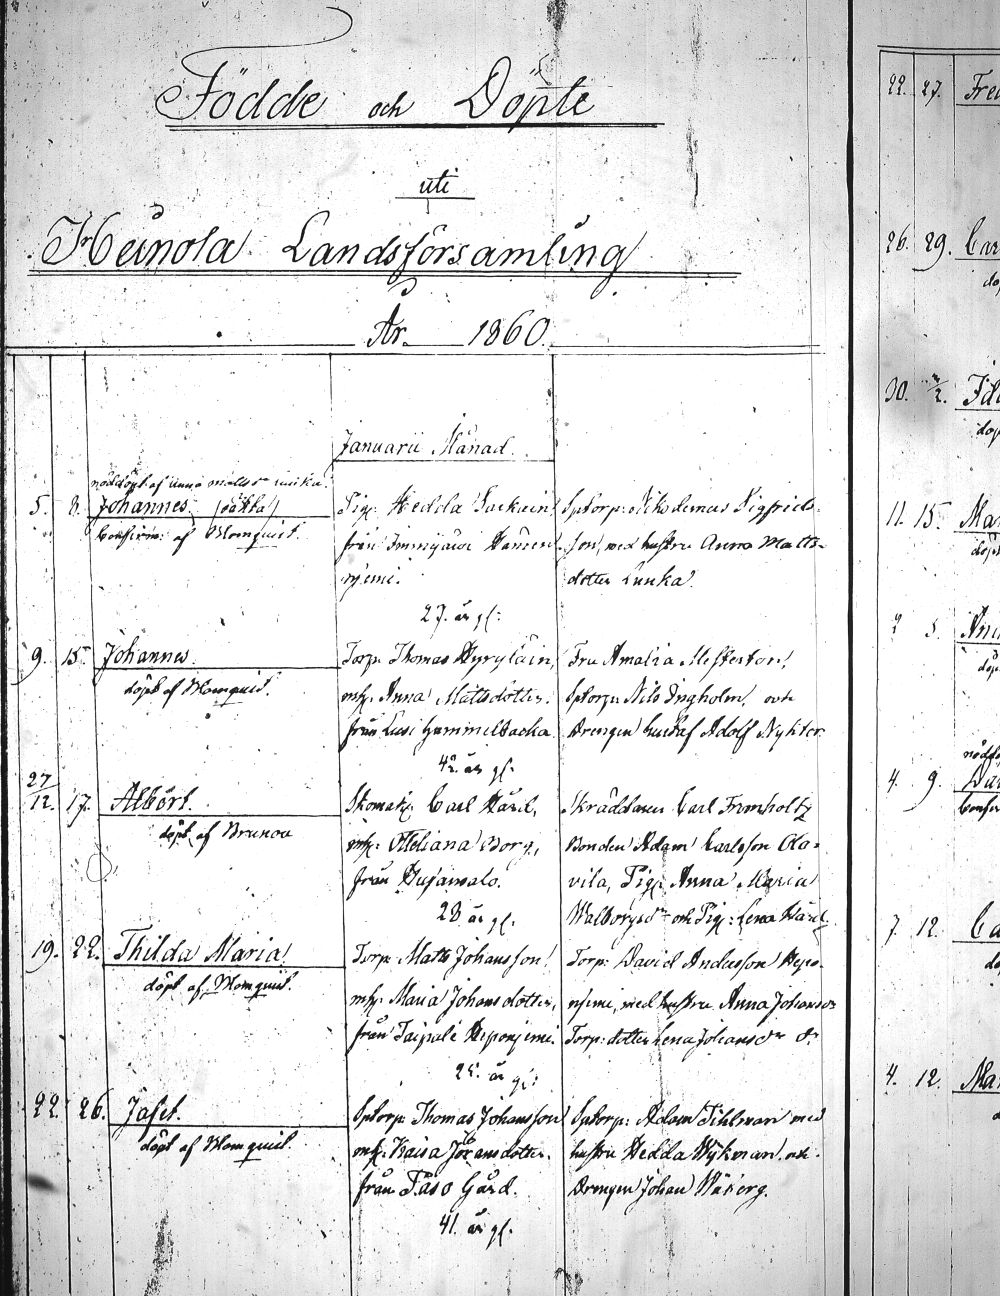 Födde och Döpte
uti
Heinola Landsförsamling
År 1860.
Januarii Månad.
nöddöpt af Anna
5. 8. Johannes (oäkta)
Confirm: af Blomquist.
Pig: Hedda
från
njemi.
27. år gl:
Sptorp: Nikodemus Sigfrids-
son, med hustru Anna Matts-
dotter Lunka.
9. 15. Johannes.
döpt af Blomquist.
Torp: Thomas Hyryläin,
mh: Anna Mattsdotter.
från Lusi Gammelbacka
42. år gl:
Fru Amalia
Sptorp: Nils Ingholm, och
Drengen Gustaf Adolf Nykter.
27/12. 17. Albert.
döpt af Brunou
Skomak: Carl
mh:
från
28 år gl:
Skräddaren Carl Fromholtz
Bonden Adam Carlsson Ola-
vila, Pig: Anna Maria
Walborgsdr och Pig: Lena
19. 22. Thilda Maria
döpt af Blomquist.
Torp: Matts Johansson
mh: Maria Johansdotter,
från Taipale Heponjemi.
25. år gl:
Torp: David Andersson Hepo-
njemi, med hustru Anna Johansdr
Torp: dotter Lena Johansdr
22. 26. Jafet.
döpt af Blomquist.
Sptorp: Thomas Johansson
mh: Kaisa Göransdotter.
från Gård.
41. år gl:
Sptorp: Adam Tihlman med
hustru Hedda Wykman, och
Drengen Johan
22. 27.
26. 29.
döp
30.
döp
11. 15.
döpt
5.
4. 9.
7. 12.
4. 12.